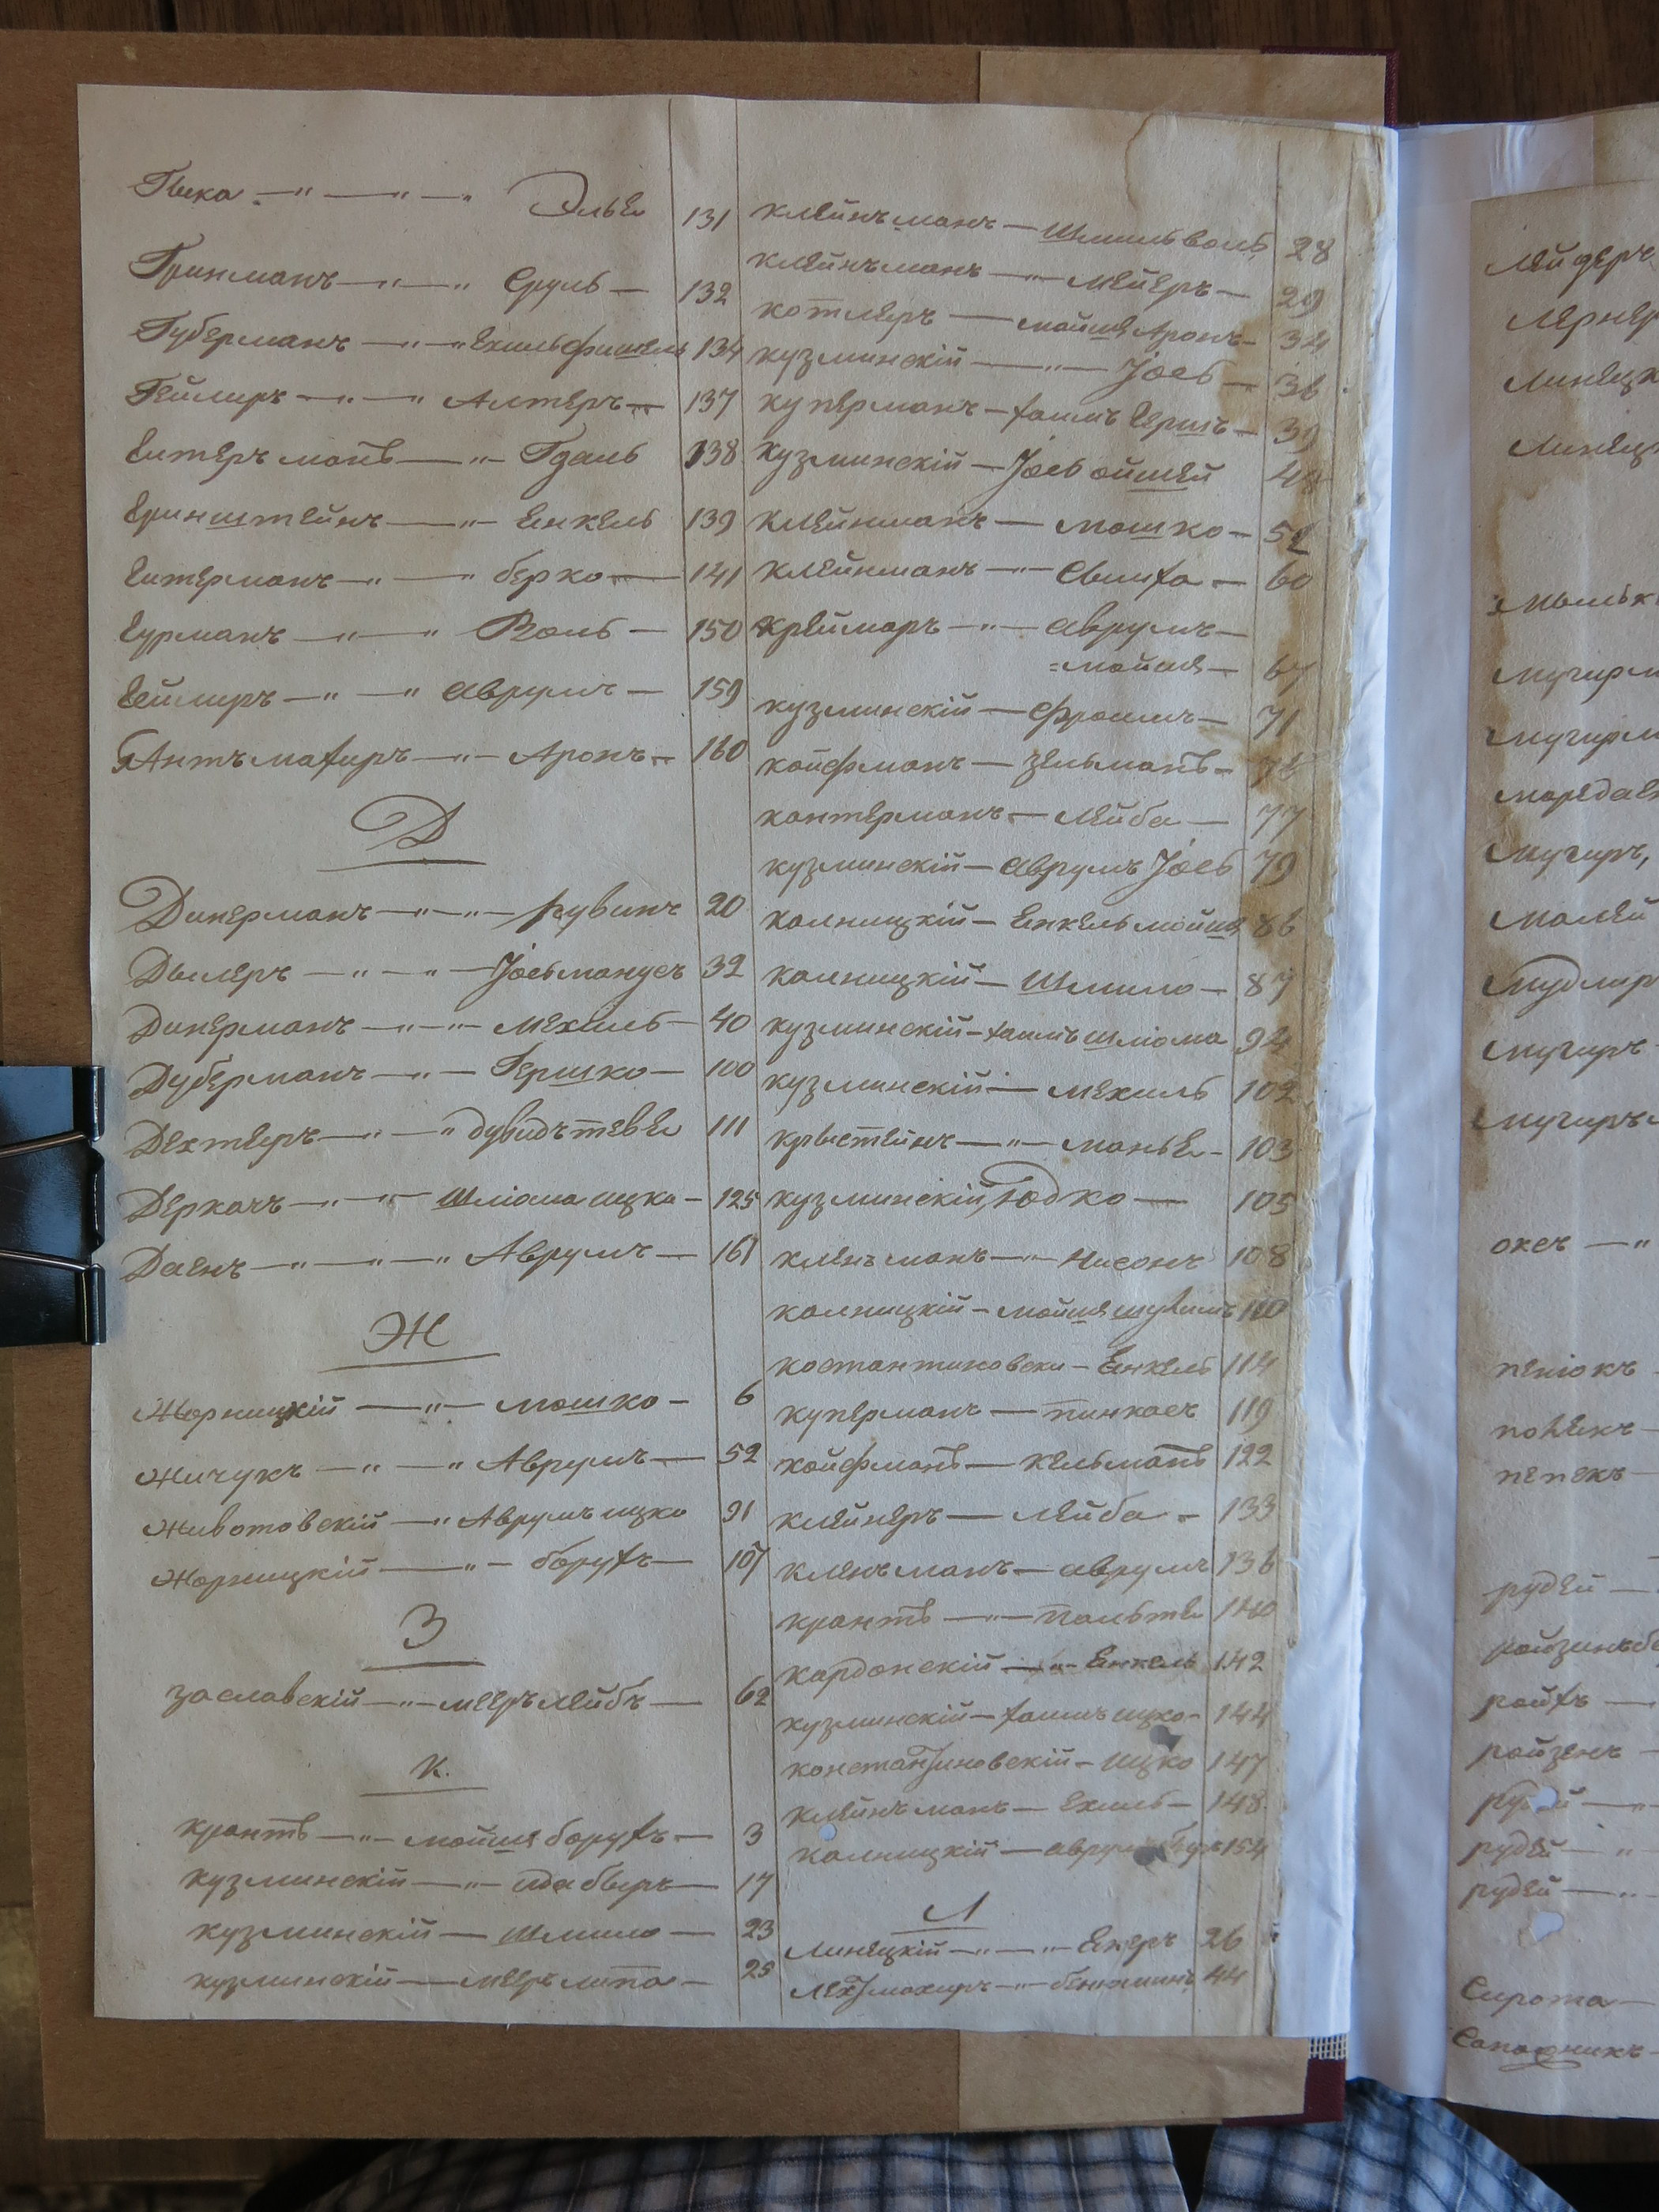 Гика — " — " — " Эльє 131
Гринманъ — " — " Сруль — 132
Губерманъ — " — " Ехильфишель 134
Геймиръ — " — " Алтеръ — 137
Гитерманъ — " — Гдаль 138
Гринштейнъ — " — Енкель 139
Гитерманъ — " — " берко — 141
Гурманъ — " — " Воль — 150
Геймиръ — " — " аврумъ — 159
Антъмахиръ — " — Аронъ — 160
Д
Дикерманъ — " — " — рувинъ 20
Дымеръ — " — " — Іосьманусъ 32
Дикерманъ — " — " — мехиль — 40
Дуберманъ — " — Гершко — 100
Дехтеръ — " — " дувидътеве 111
Деркачъ — " — " Шліома ицко — 125
Даенъ — " — " — " Аврумъ — 161
Ж
Жорницкій — " — мошко — 6
Жичукъ — " — " Аврумъ — 52
Животовскій — " Аврумъ ицко 91
Жорницкій — " — борухъ — 107
З
заславскій — " — мееръ лейбъ — 62
К.
крантъ — " — мойше борухъ — 3
кузминскій — " — идабыръ — 17
кузминскій — Шмило — 23
кузминскій — мееръ липа — 25
клейнъманъ — Шмильволь 28
клейнъманъ — " — мейеръ — 29
котлеръ — мойше Аронъ — 34
кузминскій — " — Іось — 36
куперманъ — хаимъ Гершъ — 39
кузминскій — Іось ойшей
клейнманъ — мошко —
клейнманъ — " — 60
креймаръ — " — аврумъ —
=мойше — 67
кузминскій — фроимъ — 71
койфманъ — зельманъ —
контерманъ — лейба — 77
кузминскій — аврумъ Іось 79
калницкій — Енкель мойше 86
калницкій — Шмило — 87
кузминскій — хаимъ шліома 94
кузминскій — мехиль 102
крыстейнъ — " — маньє — 103
кузминскій, Юдко — 105
кленъманъ — " — Нисонъ 108
калницкій — мойше 110
костантиновски — Енкель 114
куперманъ — пинкасъ 119
койфманъ — кельманъ 122
клейнеръ — лейба — 133
кленъманъ — аврумъ 136
крантъ — " — пальтє 140
кардонскій — " — Енкель 142
кузминскій — хаимъ ицко — 144
константиновскій — ицко 147
клейнъманъ — Ехиль — 148
калницкій — аврумъ 154
Л
Линецкій — " — " Екеръ 26
Лехтмахиръ — " — бенюминъ 44
лейдеръ
лернер
линецк
линец
мильк
мучирм
мучирм
мордае
мучиръ,
малей
мудлир
мучиръ
мучиръ
оксъ — "
пенюкъ
пепекъ
рудей —
ройзинъбе
ройхъ —
ройзенъ —
рудей — " —
рудей — " —
Сирота —
Сапожникъ —